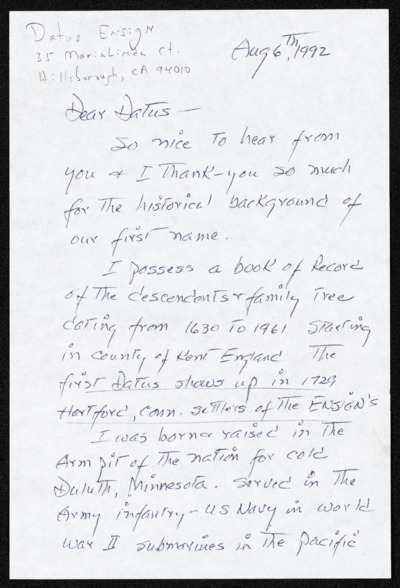 Datus Ensign
35 Marialinda Ct.
Hillsborough, CA 94010
Aug 6TH, 1992
Dear Datus —
So nice to hear from
you & I Thank-you so much
for The historical background of
our first name.
I possess a book of Record
of The descendents & family Tree
dating from 1630 To 1961 Starting
in county of Kent England The
first Datus shows up in 1729
Hartford, Conn. settlers of The ENSIGN'S
I was born & raised in The
Arm pit of The nation for cold
Duluth, Minnesota. Served in The
Army infantry - US Navy in world
war II submarines in The pacific